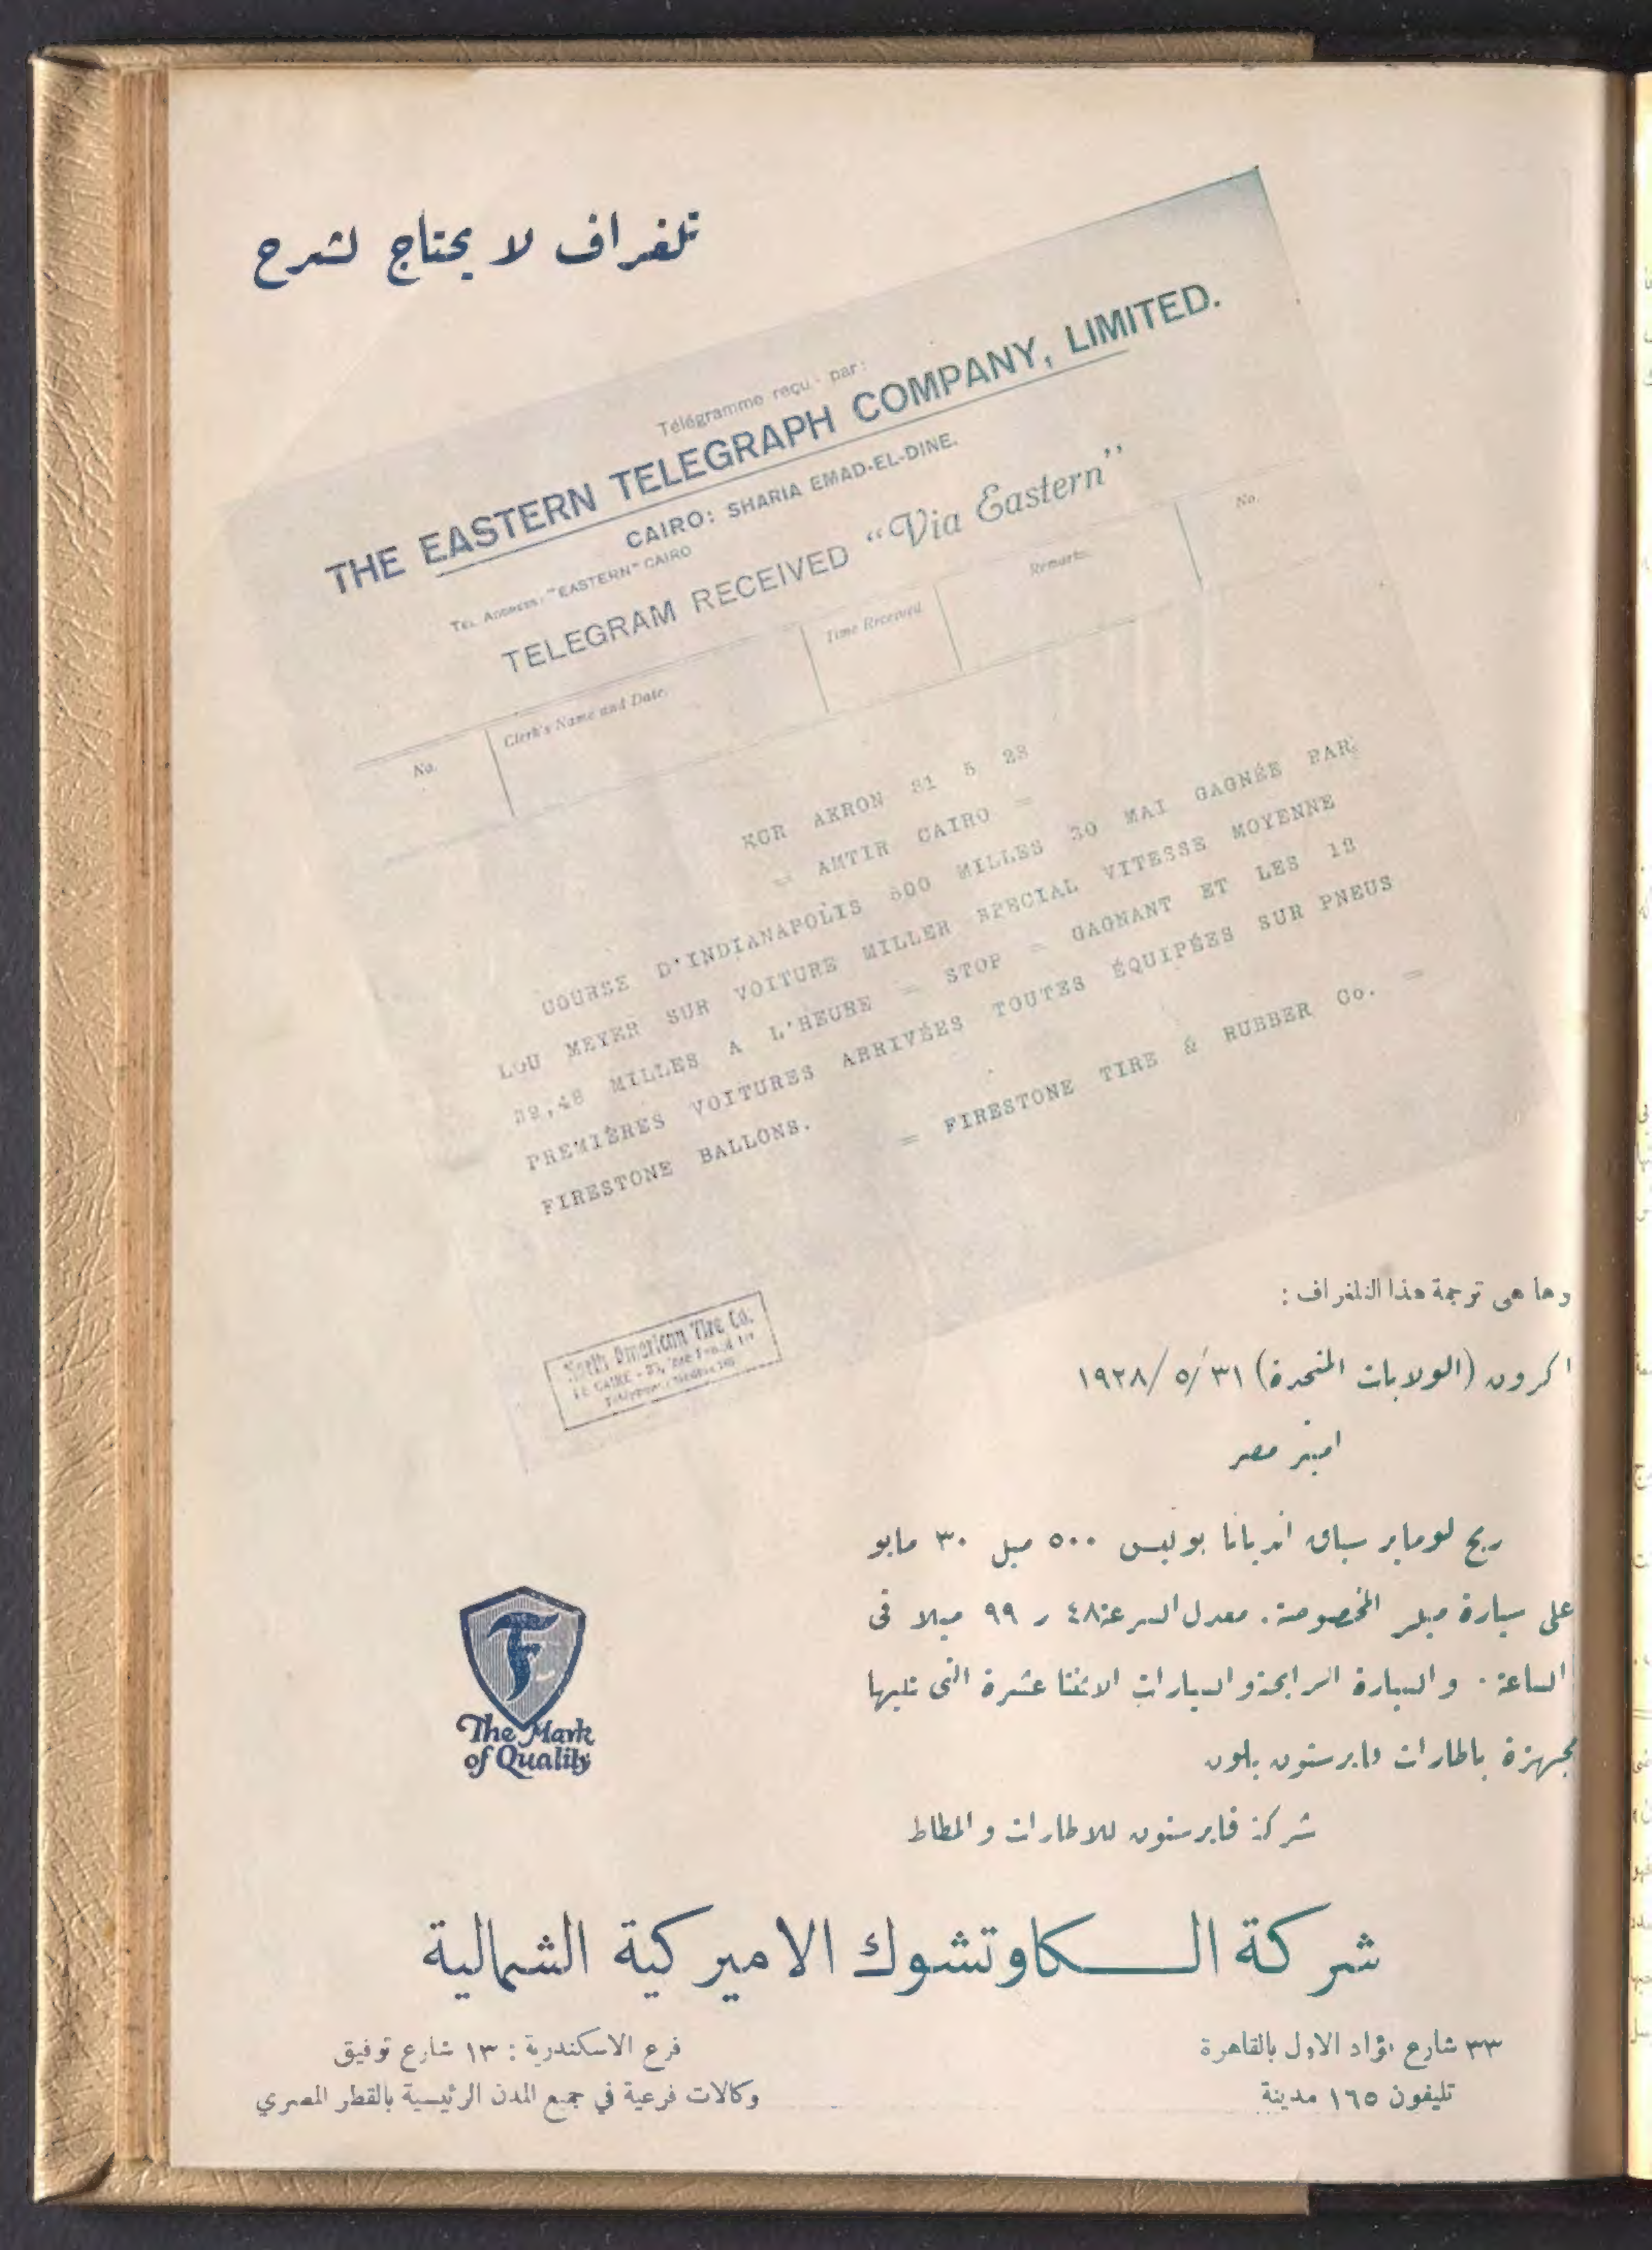 تلغراف لا يحتاج لشرح
Télégramme reçu par:
THE EASTERN TELEGRAPH COMPANY, LIMITED.
CAIRO: SHARIA EMAD-EL-DINE.
TEL. ADDRESS: "EASTERN" CAIRO
TELEGRAM RECEIVED "Via Eastern"
No. Clerk's Name and Date. Time Received. Remarks. No.
AKRON 31 5 28
= AMTIR CAIRO =
COURSE D'INDIANAPOLIS 500 MILLES 30 MAI GAGNÉE PAR
LOU MEYER SUR VOITURE MILLER SPECIAL VITESSE MOYENNE
99,48 MILLES A L'HEURE = STOP = GAGNANT ET LES 12
PREMIÈRES VOITURES ARRIVÉES TOUTES ÉQUIPÉES SUR PNEUS
FIRESTONE BALLONS.
= FIRESTONE TIRE & RUBBER Co. =
North American Tire Co.
وها هى ترجمة هذا التلغراف :
اكرون (الولايات المتحدة) ٣١/ ٥/ ١٩٢٨
امتير مصر
ربح لوماير سباق انديانا بوليس ٥٠٠ ميل ٣٠ مايو
على سيارة ميلر المخصوصة. معدل السرعة ٤٨ ر ٩٩ ميلا فى
الساعة . والسيارة الرابحة والسيارات الاثنتا عشرة التى تليها
مجهزة باطارات فايرستون بلون
شركة فايرستون للاطارات والمطاط
F
The Mark
of Quality
شركة الكاوتشوك الاميركية الشمالية
٣٣ شارع فؤاد الاول بالقاهرة
تليفون ١٦٥ مدينة
فرع الاسكندرية : ١٣ شارع توفيق
وكالات فرعية في جميع المدن الرئيسية بالقطر المصري